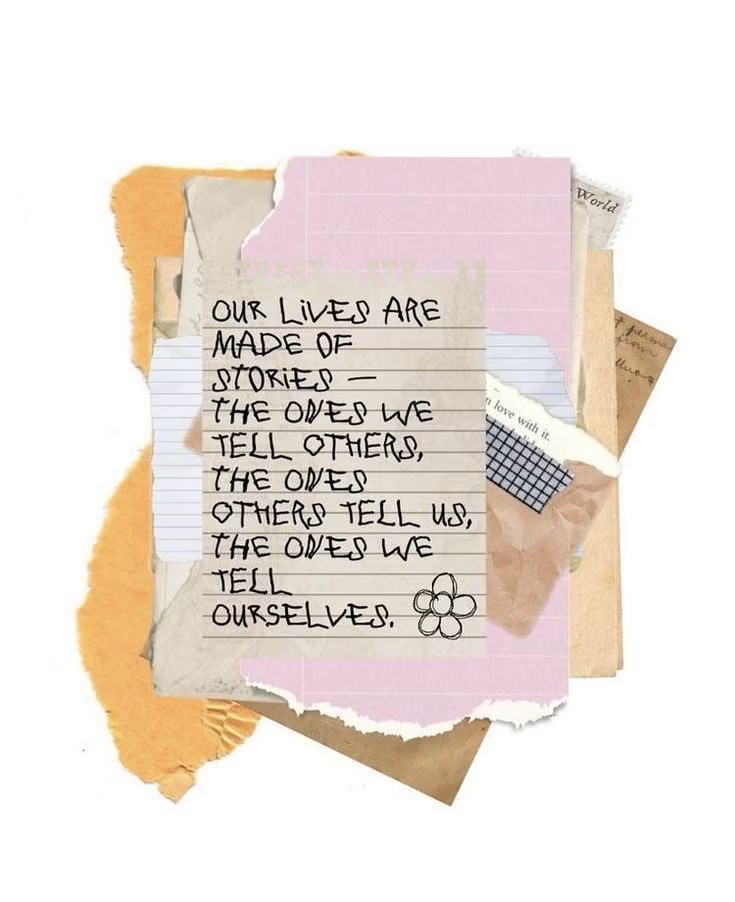 World
OUR LiVES ARE
MADE OF
STORiES —
THE ONES WE
TELL OTHERS,
THE ONES
OTHERS TELL US,
THE ONES WE
TELL
OURSELVES.
love with it.